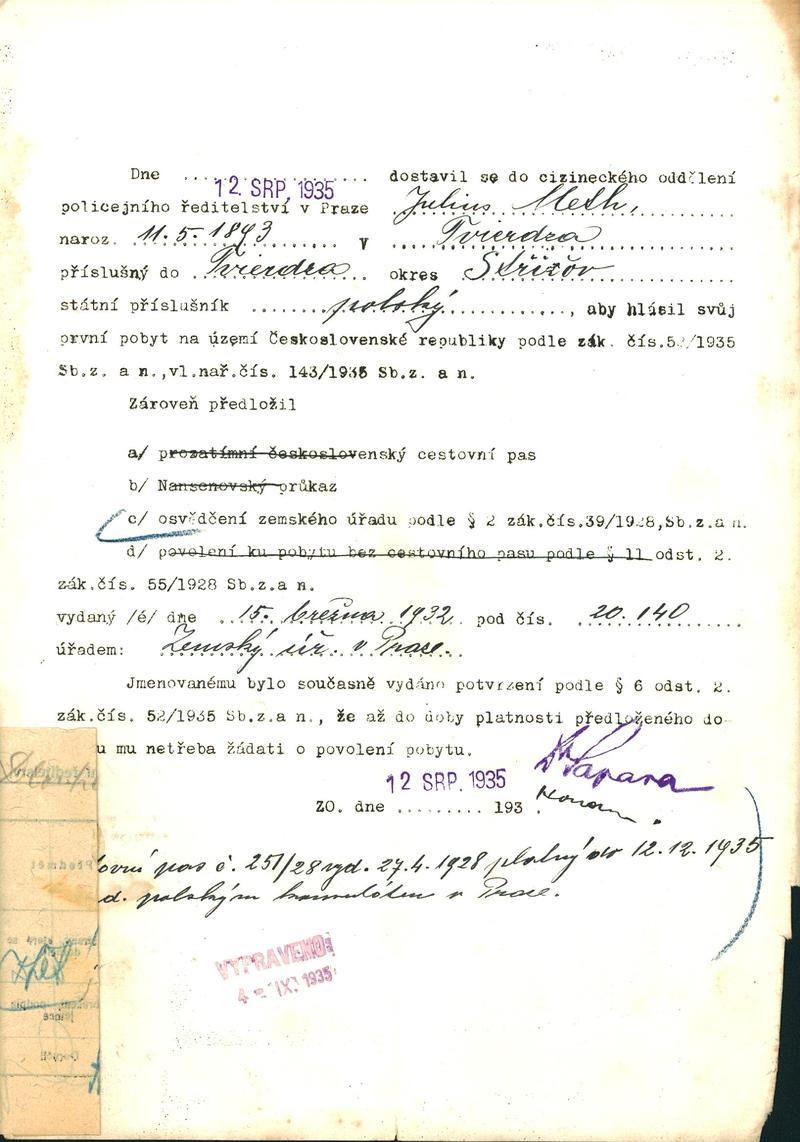 Dne .................... dostavil se do cizineckého oddělení
12. SRP. 1935
policejního ředitelství v Praze Julius Meth,
naroz. 11.5.1893 v Tvierdza
příslušný do Tvierdza okres Střižóv
státní příslušník polský, aby hlásil svůj
první pobyt na území Československé republiky podle zák. čís.52/1935
Sb.z. a n.,vl.nař.čís. 143/1935 Sb.z. a n.
Zároveň předložil
a/ prozatímní československý cestovní pas
b/ Nansenovský průkaz
c/ osvědčení zemského úřadu podle § 2 zák.čís.39/1928,Sb.z.a n.
d/ povolení ku pobytu bez cestovního pasu podle § 11 odst. 2.
zák.čís. 55/1928 Sb.z.a n.
vydaný /é/ dne 15. března 1932 pod čís. 20.140
úřadem: Zemský úř. v Praze.
Jmenovanému bylo současně vydáno potvrzení podle § 6 odst. 2.
zák.čís. 52/1935 Sb.z.a n., že až do doby platnosti předloženého do-
u mu netřeba žádati o povolení pobytu.
12 SRP. 1935
ZO. dne ......... 193 .
ovní pas č. 251/28 vyd. 27.4.1928 platný do 12.12.1935
d. polským konsulátem v Praze.
VYPRAVENO:
4 - IX. 1935